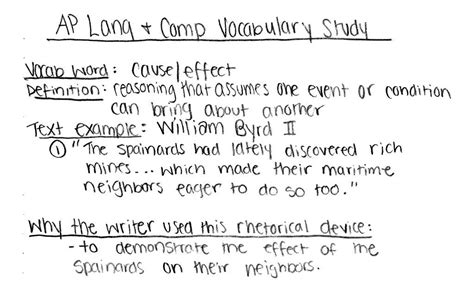 AP Lang + Comp Vocabulary Study
Vocab Word: cause/effect
Definition: reasoning that assumes one event or condition
can bring about another
Text example: William Byrd II
① "The spainards had lately discovered rich
mines... which made their maritime
neighbors eager to do so too."
Why the writer used this rhetorical device:
- to demonstrate the effect of the
spainards on their neighbors.